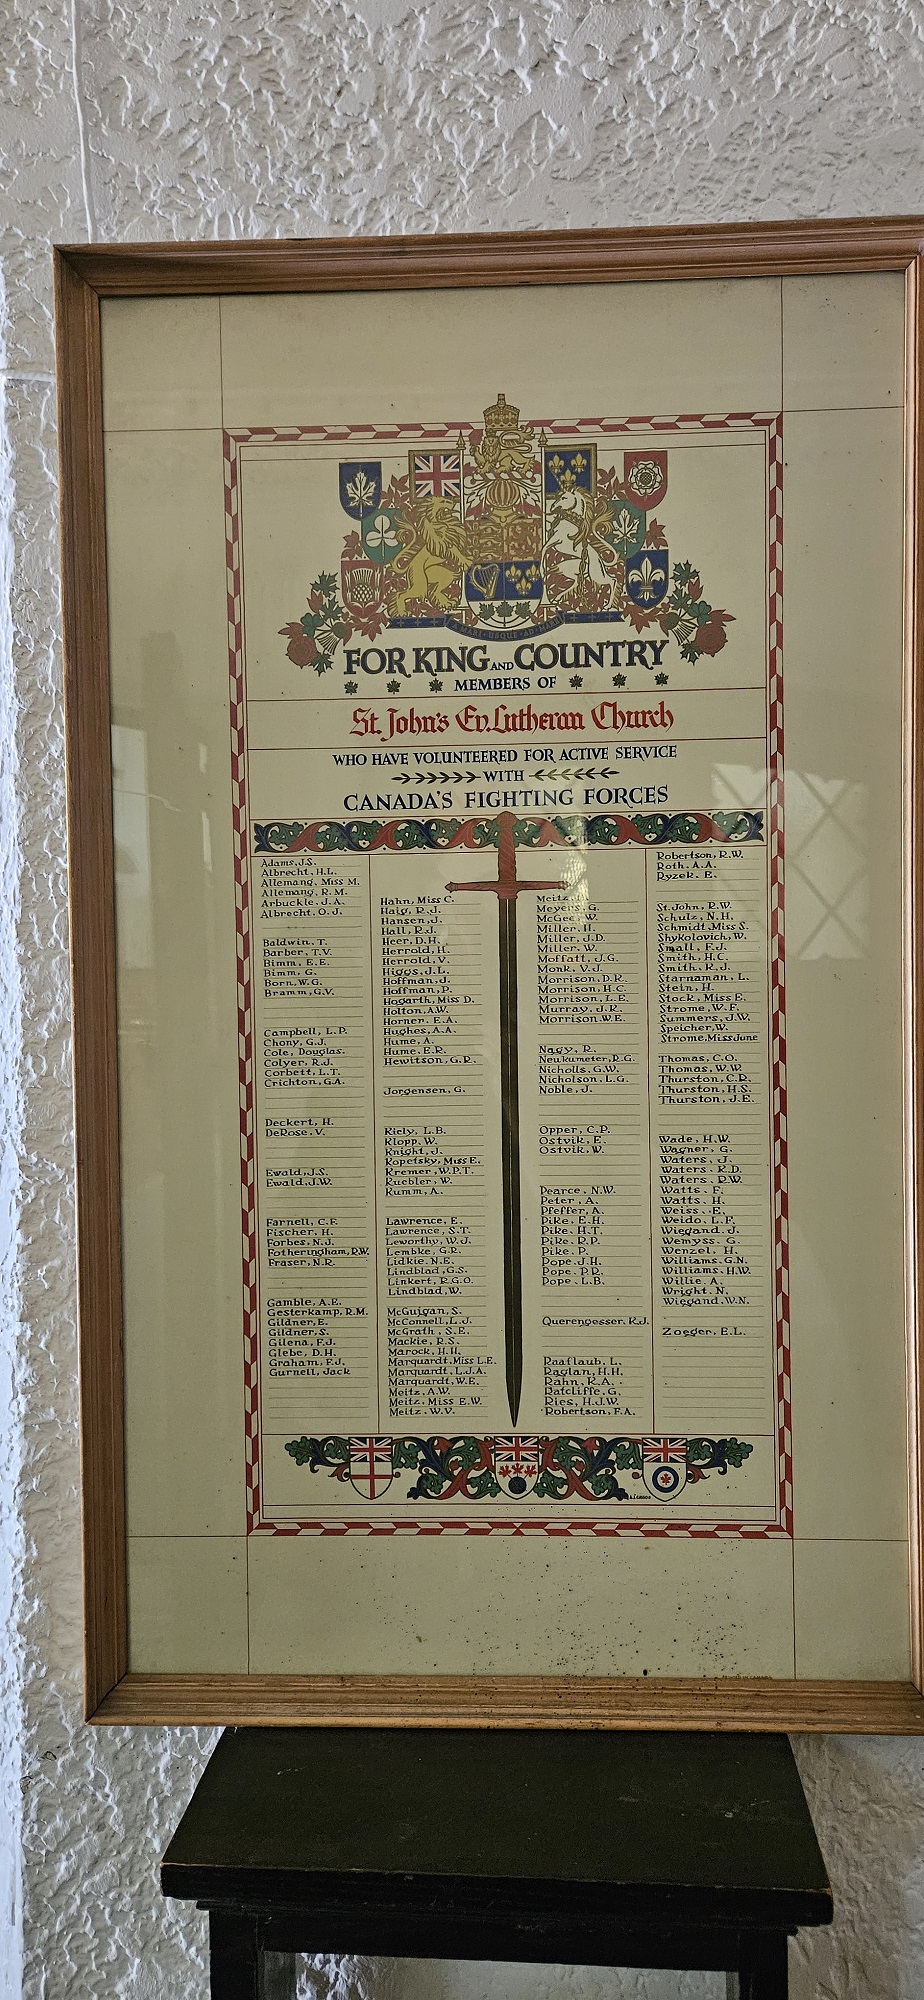 A MARI USQUE AD MARE
FOR KING AND COUNTRY
MEMBERS OF
St. John's Ev. Lutheran Church
WHO HAVE VOLUNTEERED FOR ACTIVE SERVICE
WITH
CANADA'S FIGHTING FORCES
Adams, J.S.
Albrecht, H.L.
Allemang, Miss M.
Allemang, R.M.
Arbuckle, J.A.
Albrecht, O.J.
Baldwin, T.
Barber, T.V.
Bimm, E.E.
Bimm, G.
Born, W.G.
Bramm, G.V.
Campbell, L.P.
Chony, G.J.
Cole, Douglas.
Colyer, R.J.
Corbett, L.T.
Crichton, G.A.
Deckert, H.
DeRose, V.
Ewald, J.S.
Ewald, J.W.
Farnell, C.F.
Fischer, H.
Forbes, N.J.
Fotheringham, R.W.
Fraser, N.R.
Gamble, A.E.
Gesterkamp, R.M.
Gildner, E.
Gildner, S.
Gilena, F.J.
Glebe, D.H.
Graham, F.J.
Gurnell, Jack
Hahn, Miss C.
Haig, R.J.
Hansen, J.
Hall, R.J.
Heer, D.H.
Herrold, H.
Herrold, V.
Higgs, J.L.
Hoffman, J.
Hoffman, P.
Hogarth, Miss D.
Holton, A.W.
Horner, E.A.
Hughes, A.A.
Hume, A.
Hume, E.R.
Hewitson, G.R.
Jorgensen, G.
Kiely, L.B.
Klopp, W.
Knight, J.
Kopetsky, Miss E.
Kremer, W.P.T.
Kuebler, W.
Kumm, A.
Lawrence, E.
Lawrence, S.T.
Leworthy, W.J.
Lembke, G.R.
Lidkie, N.E.
Lindblad, G.S.
Linkert, R.G.O.
Lindblad, W.
McGuigan, S.
McConnell, L.J.
McGrath, S.E.
Mackie, R.S.
Marock, H.H.
Marquardt, Miss L.E.
Marquardt, L.J.A.
Marquardt, W.E.
Meitz, A.W.
Meitz, Miss E.W.
Meitz, W.V.
Meitz,
Meyers, G.
McGee, W.
Miller, H.
Miller, J.D.
Miller, W.
Moffatt, J.G.
Monk, V.J.
Morrison, D.R.
Morrison, H.C.
Morrison, L.E.
Murray, J.R.
Morrison, W.E.
Nagy, R.
Neukumeter, R.G.
Nicholls, G.W.
Nicholson, L.G.
Noble, J.
Opper, C.P.
Ostvik, E.
Ostvik, W.
Pearce, N.W.
Peter, A.
Pfeffer, A.
Pike, E.H.
Pike, H.T.
Pike, R.P.
Pike, P.
Pope, J.H.
Pope, P.R.
Pope, L.B.
Querengesser, K.J.
Raaflaub, L.
Raglan, H.H.
Rahn, K.A.
Ratcliffe, G.
Ries, H.J.W.
Robertson, F.A.
Robertson, R.W.
Roth, A.A.
Ryzek, E.
St. John, R.W.
Schulz, N.H.
Schmidt, Miss S.
Shykolovich, W.
Small, F.J.
Smith, H.C.
Smith, R.J.
Starnaman, L.
Stein, H.
Stock, Miss E.
Strome, W.F.
Summers, J.W.
Speicher, W.
Strome, Miss June
Thomas, C.O.
Thomas, W.W.
Thurston, C.R.
Thurston, H.S.
Thurston, J.E.
Wade, H.W.
Wagner, G.
Waters, J.
Waters, R.D.
Waters, R.W.
Watts, F.
Watts, H.
Weiss, E.
Weido, L.F.
Wiegand, J.
Wemyss, G.
Wenzel, H.
Williams, G.N.
Williams, H.W.
Willie, A.
Wright, N.
Wiegand, W.N.
Zoeger, E.L.